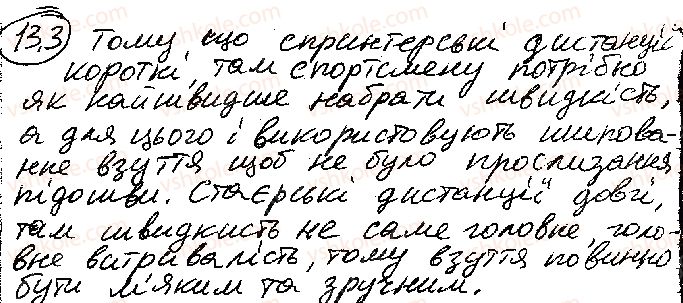 13.3 Тому, що спринтерські дистанції
короткі, там спортсмену потрібно
як найшвидше набрати швидкість,
а для цього і використовують шипова-
нне взуття щоб не було прослизання
підошви. Стаєрські дистанції довгі,
там швидкисть не саме головне, голо-
вне витривалість, тому взуття повинно
бути м'яким та зручним.